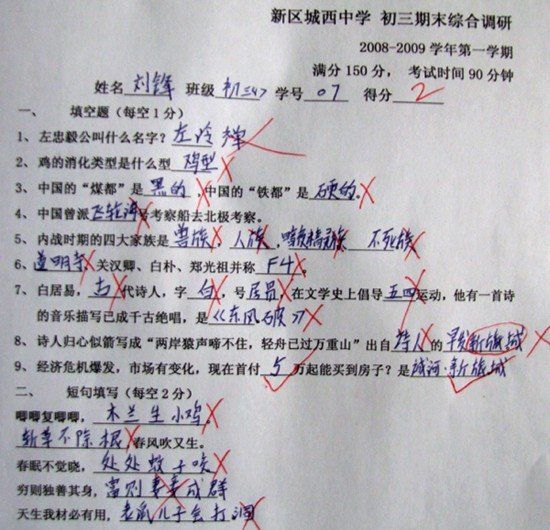 新区城西中学 初三期末综合调研
2008-2009 学年第一学期
满分 150 分, 考试时间 90 分钟
姓名 刘锋 班级 初三4 学号 07 得分 2
一、 填空题(每空 1 分)
1、左忠毅公叫什么名字?左冷禅
2、鸡的消化类型是什么型 鸡型
3、中国的“煤都”是 黑的 ,中国的“铁都”是 硬的。
4、中国曾派 飞轮海 号考察船去北极考察。
5、内战时期的四大家族是 兽族、人族、暗夜精灵族 不死族
6、道明寺、关汉卿、白朴、郑光祖并称 F4。
7、白居易,古代诗人,字 白,号 居易,在文学史上倡导 五四 运动,他有一首诗
的音乐描写已成千古绝唱,是《东风破》
8、诗人归心似箭写成“两岸猿声啼不住,轻舟已过万重山”出自 诗人 的 早发新旅城
9、经济危机爆发,市场有变化,现在首付 5 万起能买到房子?是 城河·新旅城
二、 短句填写(每空 2 分)
唧唧复唧唧,木兰生小鸡。
斩草不除根,春风吹又生。
春眠不觉晓,处处蚊子咬
穷则独善其身,富则妻妾成群
天生我材必有用,老鼠儿子会打洞